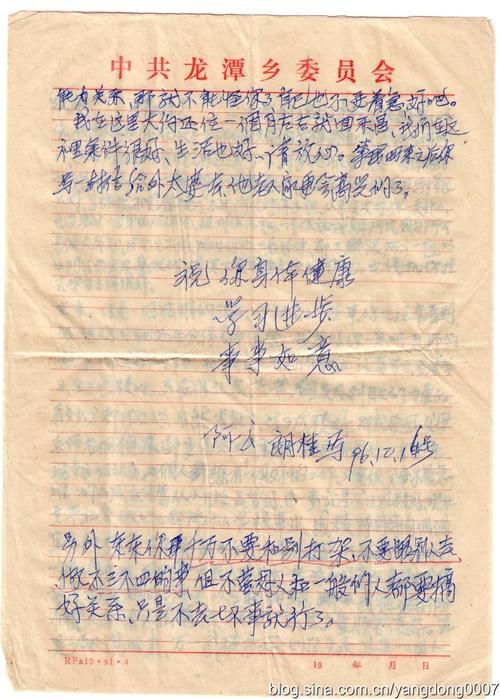 中共龙潭乡委员会
能有关系，那就不能怪你了，自己也不要着急，好吧。
我在这里大约还住一个月左右就回来昆，我们在这
里条件很好、生活也好，请放心。等我回来之后你
写一封信给外太婆去，他老人家更会高兴的了。
祝 你身体健康
学习进步
事事如意
96.12.16
另外 东东你千万不要和别打架，不要跟别人去
做不三不四的事，但不管好人和一般的人都要搞
好关系，只是不去七坏事就行了。
RPa10·91·4
19 年 月 日
blog.sina.com.cn/yangdong0007